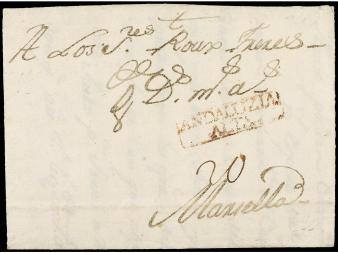 A Los S.res Roux Freres
D.s m.s a.s
ANDALUZIA
ALTA
Marsella